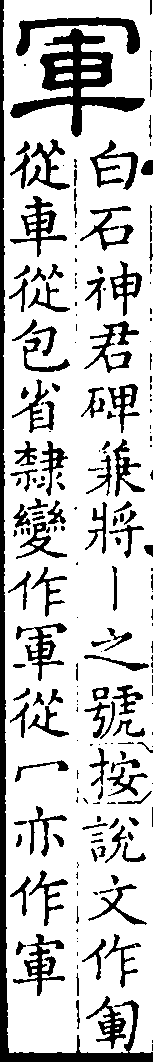 軍
白石神君碑兼將丨之號按說文作𠣞
從車從包省隸變作軍從冖亦作軍